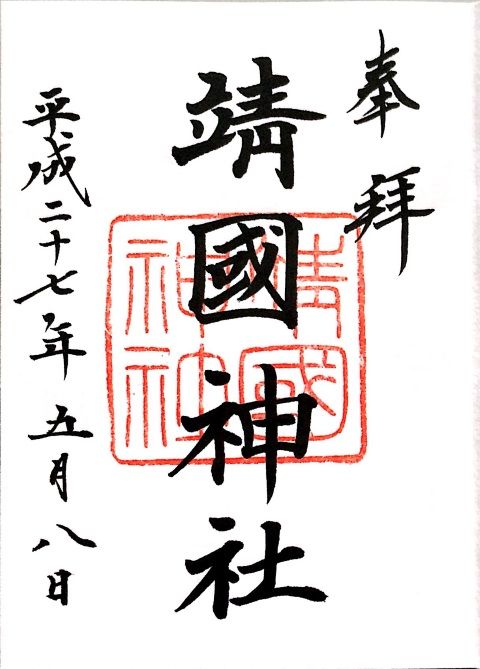 奉拝
靖國神社
靖國神社
平成二十七年五月八日